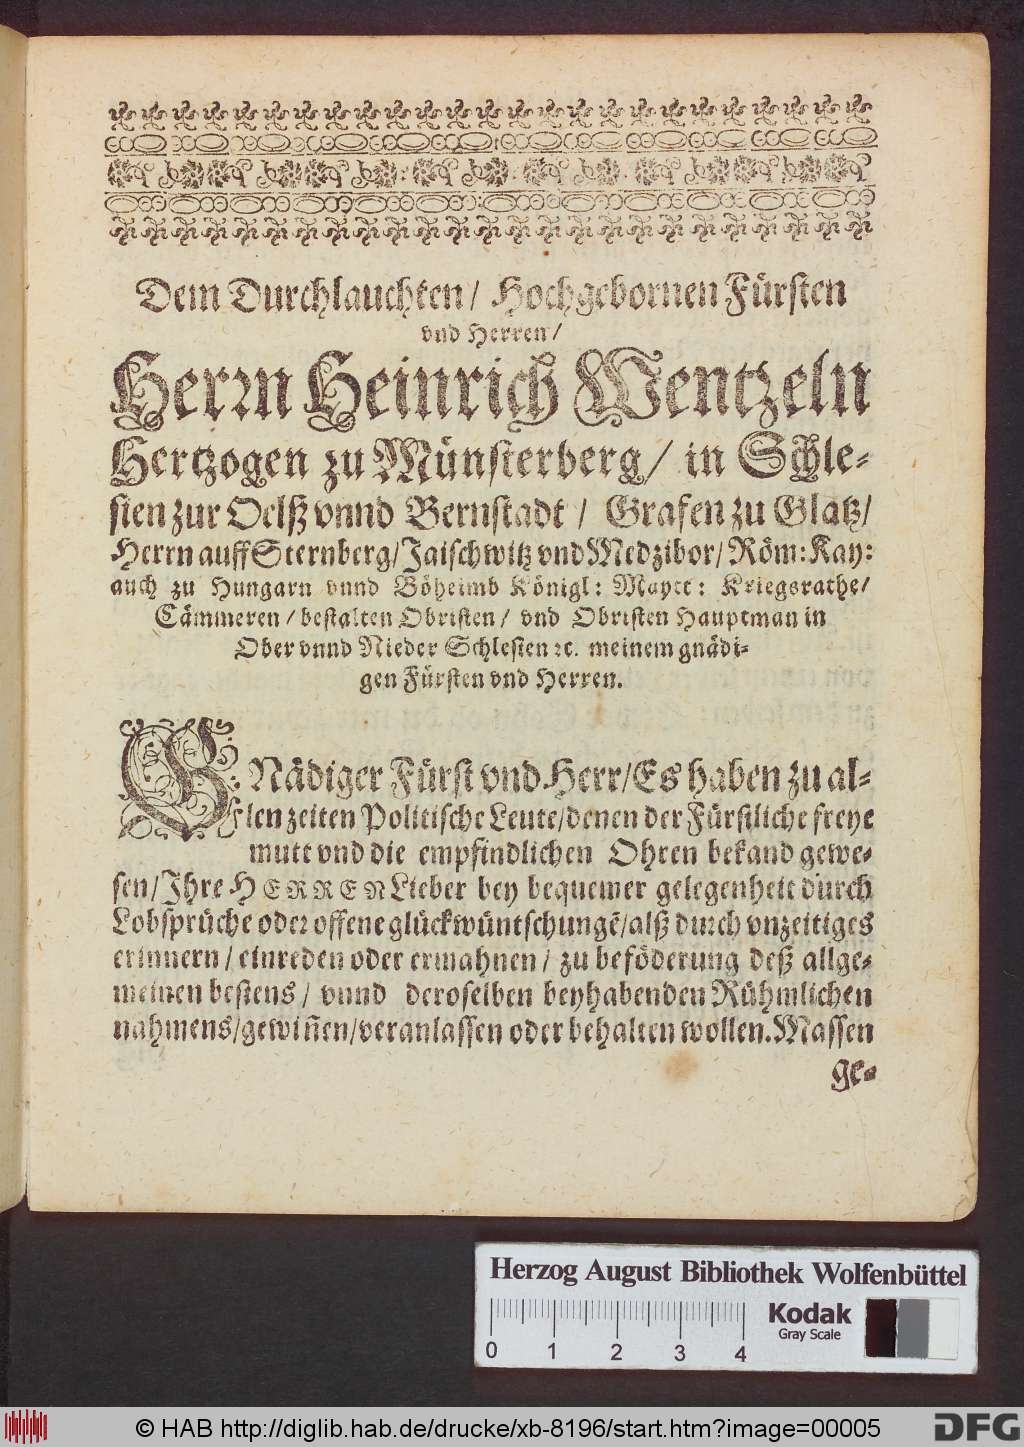 Dem Durchlauchten/ Hochgebornen Fürsten
vnd Herren/
Herrn Heinrich Wentzeln
Hertzogen zu Münsterberg/ in Schle-
sien zur Oelß vnnd Bernstadt / Grafen zu Glatz/
Herrn auff Sternberg/ Jaischwitz vnd Medzibor/ Röm: Kay:
auch zu Hungarn vnnd Böheimb Königl: Maytt: Kriegsrathe/
Cämmeren / bestalten Obristen / vnd Obristen Hauptman in
Ober vnnd Nieder Schlesien ꝛc. meinem gnädi-
gen Fürsten vnd Herren.
GNädiger Fürst vnd Herr/ Es haben zu al-
len zeiten Politische Leute/ denen der Fürstliche freye
mutt vnd die empfindlichen Ohren bekand gewe-
sen/ Jhre HERREN Lieber bey bequemer gelegenheit durch
Lobsprüche oder offene glückwüntschungē/ alß durch vnzeitiges
erinnern / einreden oder ermahnen / zu beföderung deß allge-
meinen bestens / vnnd deroselben beyhabenden Rühmlichen
nahmens/ gewiñen/ veranlassen oder behalten wollen. Massen
ge-
Herzog August Bibliothek Wolfenbüttel
Kodak
Gray Scale
0 1 2 3 4
© HAB http://diglib.hab.de/drucke/xb-8196/start.htm?image=00005
DFG